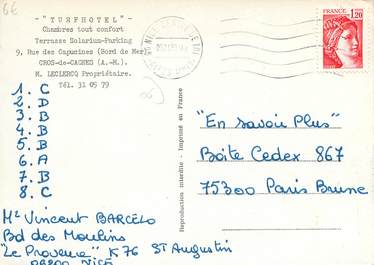 6€
-" TURFHOTEL"-
Chambres tout confort
Terrasse Solarium-Parking
9, Rue des Capucines (Bord de Mer)
CROS-de-CAGNES (A.-M.).
M. LECLERCQ Propriétaire.
Tél. 31 05 79
1. C
2. D
3. B
4. B
5. B
6. A
7. B
8. C
Mr Vincent BARCELO
Bd des Moulins
"Le Provence" K 76 ST Augustin
06200 NICE
Reproduction interdite - Imprimé en France
FRANCE
1,20
"En savoir Plus"
Boîte Cedex 867
75300 Paris Brune